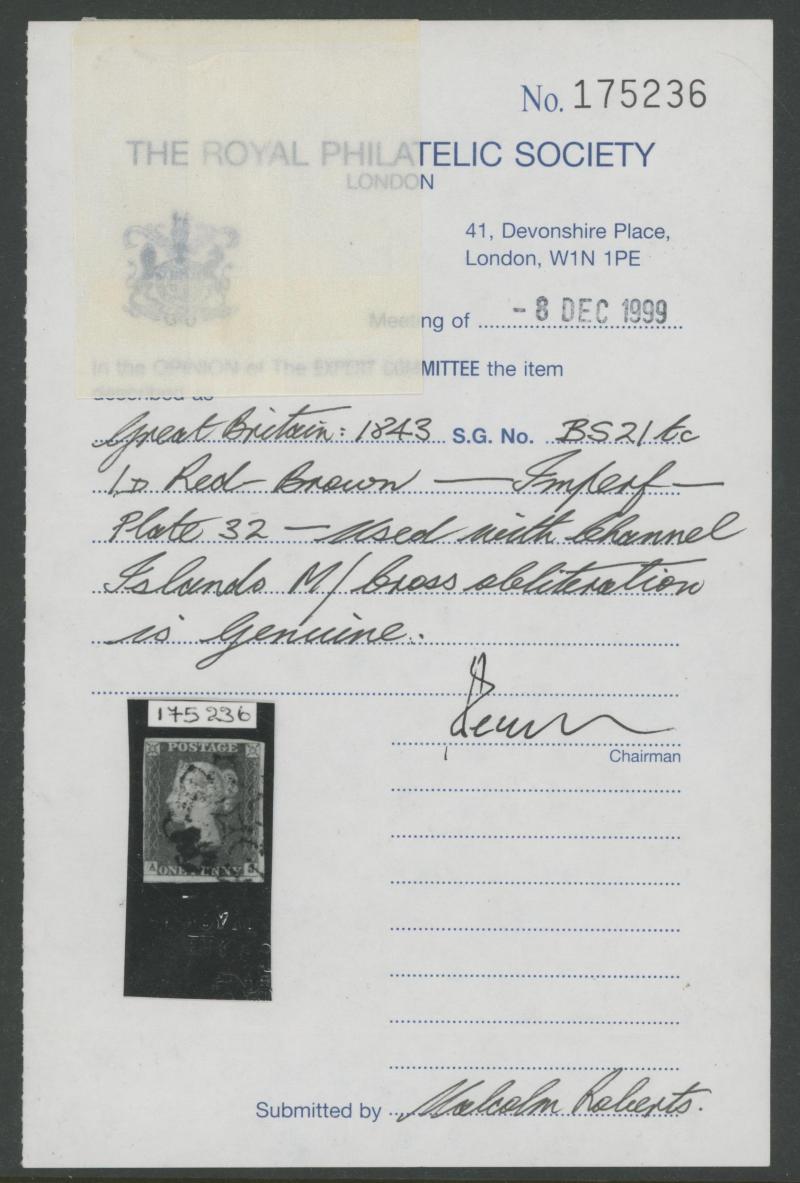 No. 175236
THE ROYAL PHILATELIC SOCIETY
LONDON
41, Devonshire Place,
London, W1N 1PE
Meeting of - 8 DEC 1999
In the OPINION of The EXPERT COMMITTEE the item
described as
Great Britain: 1843 S.G. No. BS21tc
1D Red-Brown — Imperf —
Plate 32 — Used with Channel
Islands M/Cross obliteration
is Genuine.
Chairman
175236
POSTAGE
A ONE PENNY J
Submitted by Malcolm Roberts.